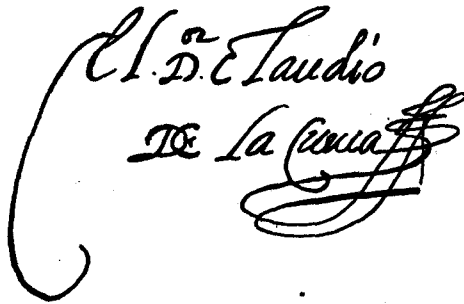 El L. Dor. Claudio
De la Cueua